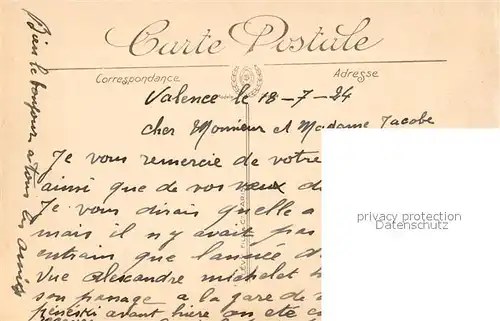 Carte Postale
Correspondance
Adresse
Valence le 18-7-24
cher Monsieur et Madame Jacobe
Je vous remercie de votre
ainsi que de vos vœux
Je vous disais quelle a
mais il n'y avait pas
entrain que l'année
Vue Alexandre michelet
son passage a la gare de
avant hier on ete
Bien le bonjour a tous les amis
privacy protection
Datenschutz